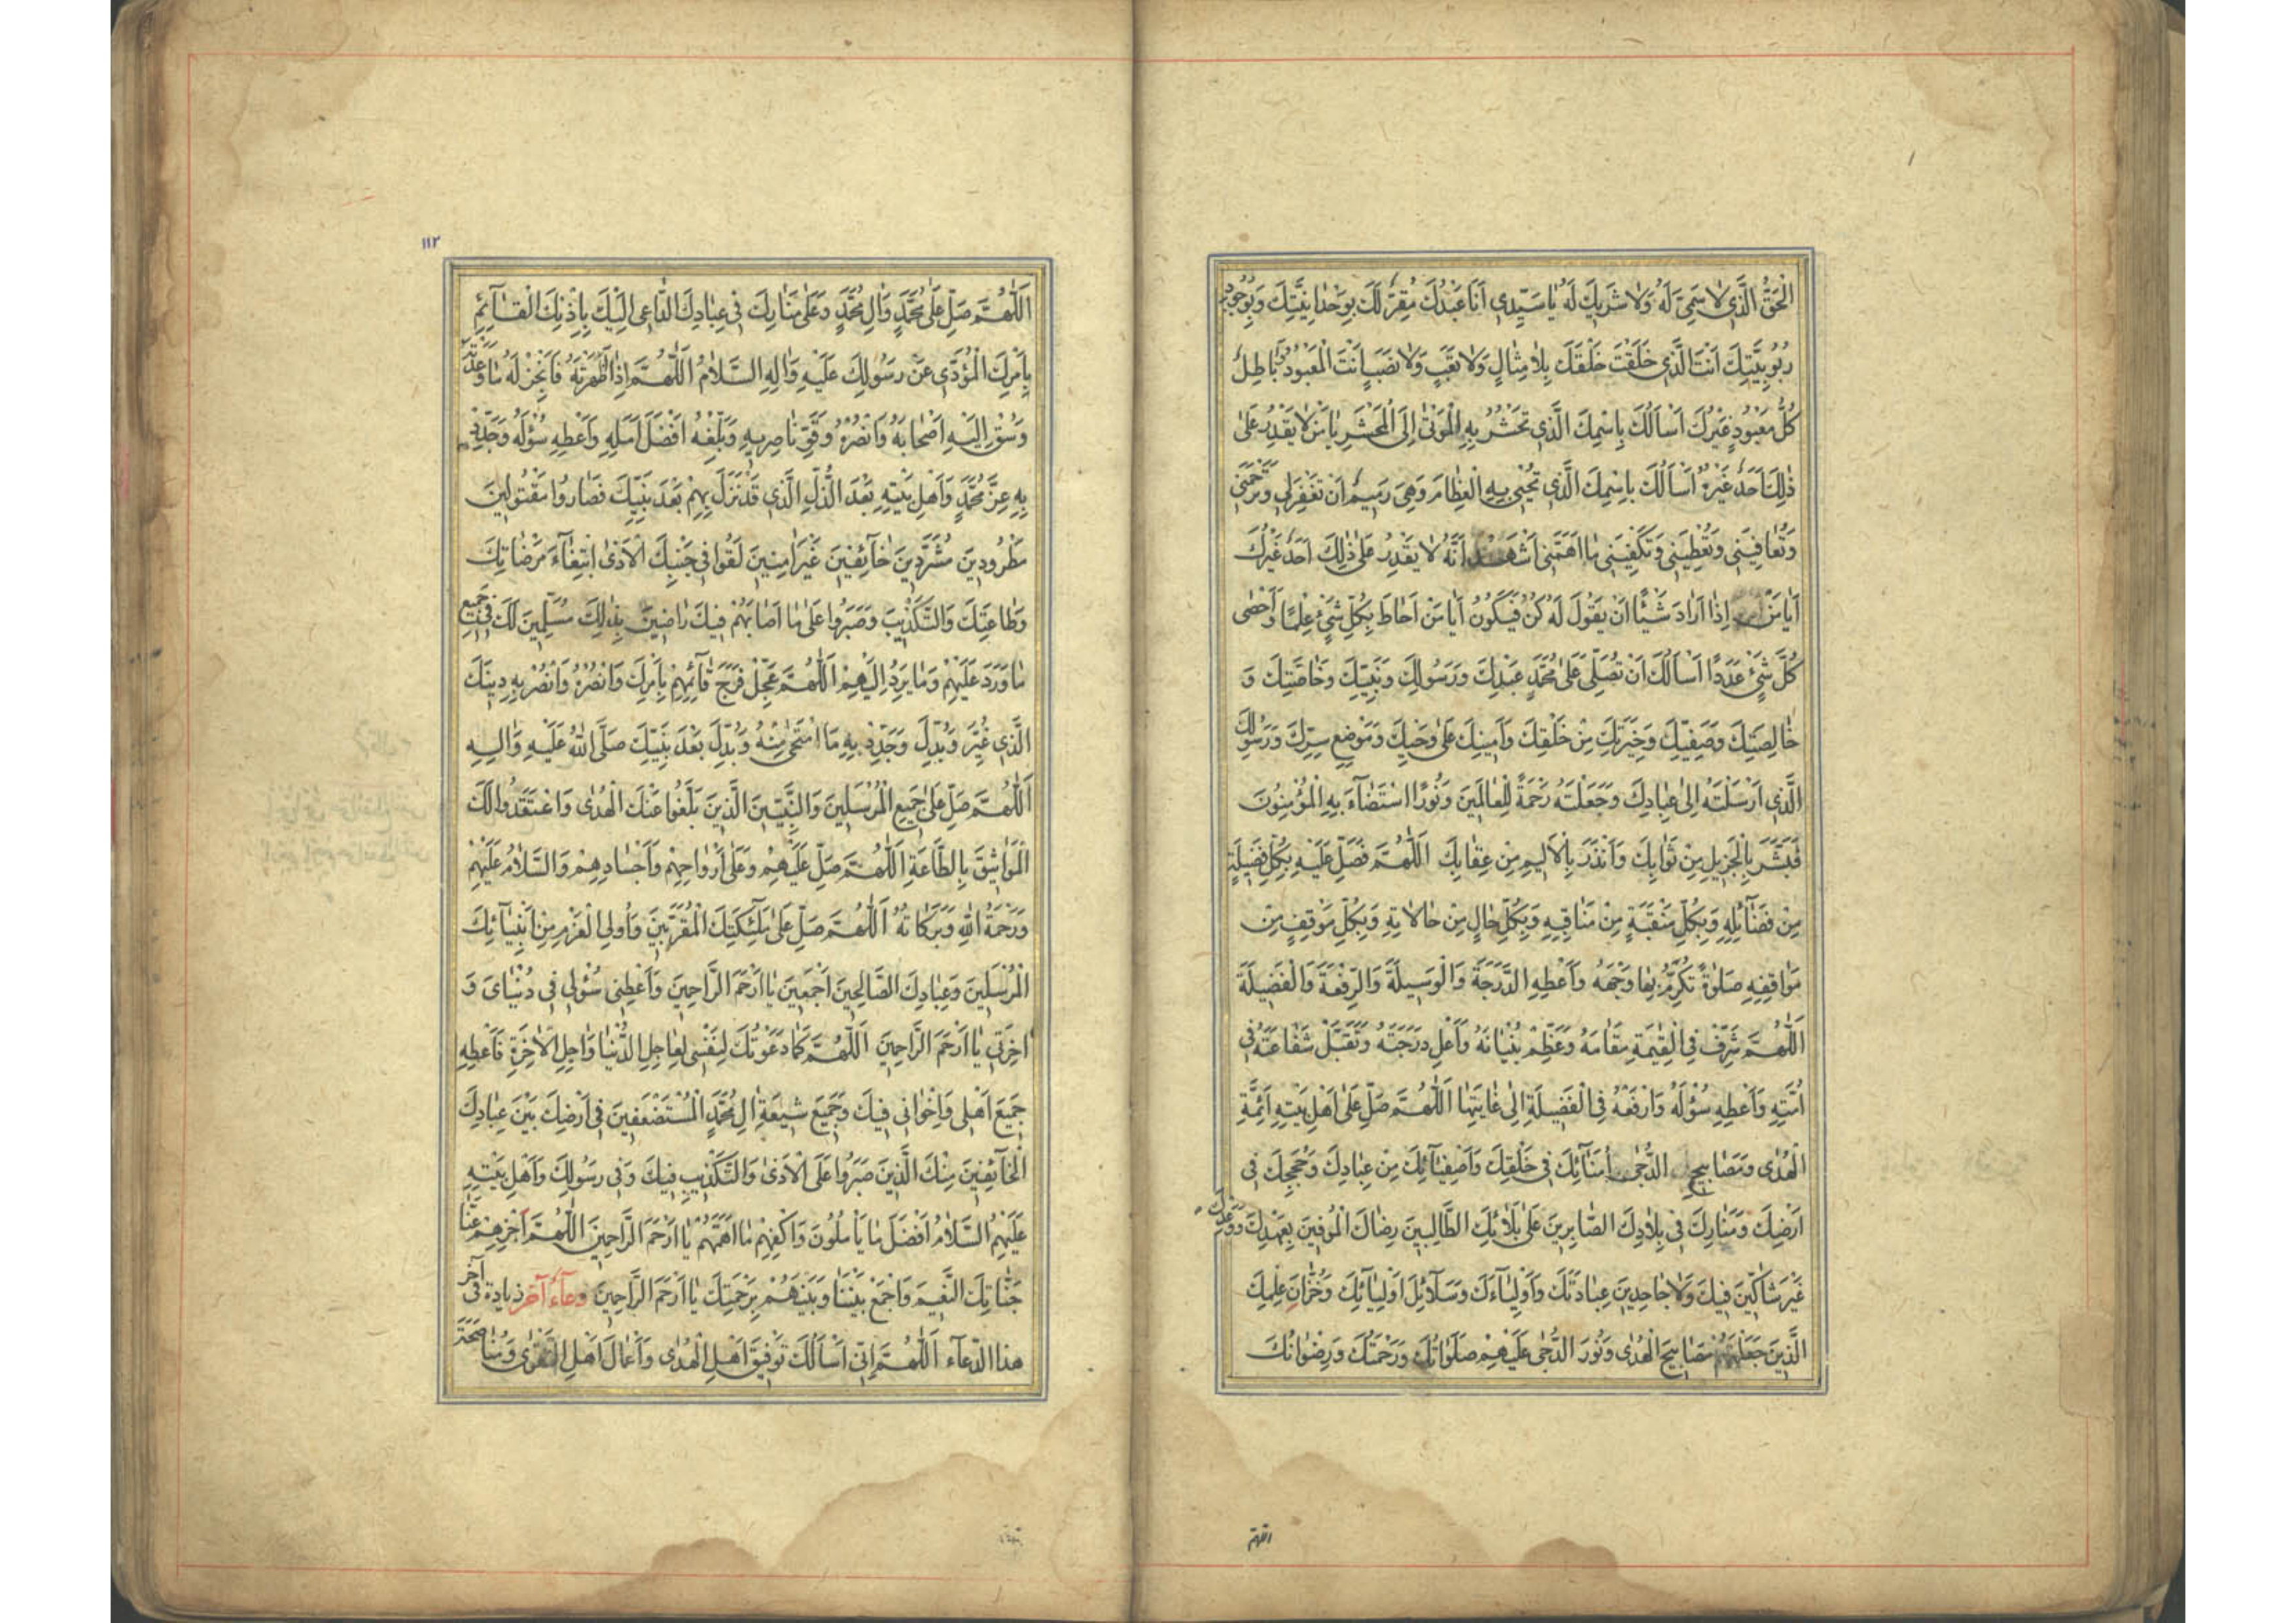 الْحَقُّ الَّذِي لَا سَمِيَّ لَهُ وَلَا شَرِيكَ لَهُ يَا سَيِّدِي أَنَا عَبْدُكَ مُقِرٌّ لَكَ بِوَحْدَانِيَّتِكَ وَبِوُجُودِ
رُبُوبِيَّتِكَ أَنْتَ الَّذِي خَلَقْتَ خَلْقَكَ بِلَا مِثَالٍ وَلَا تَعَبٍ وَلَا نَصَبٍ أَنْتَ الْمَعْبُودُ وَبَاطِلٌ
كُلُّ مَعْبُودٍ غَيْرُكَ أَسْأَلُكَ بِاسْمِكَ الَّذِي تَحْشُرُ بِهِ الْمَوْتَى إِلَى الْمَحْشَرِ يَا مَنْ لَا يَقْدِرُ عَلَى
ذَلِكَ أَحَدٌ غَيْرُهُ أَسْأَلُكَ بِاسْمِكَ الَّذِي تُحْيِي بِهِ الْعِظَامَ وَهِيَ رَمِيمٌ أَنْ تَغْفِرَ لِي وَتَرْحَمَنِي
وَتُعَافِيَنِي وَتُعْطِيَنِي وَتَكْفِيَنِي مَا أَهَمَّنِي أَشْهَدُ أَنَّهُ لَا يَقْدِرُ عَلَى ذَلِكَ أَحَدٌ غَيْرُكَ
أَيَا مَنْ إِذَا أَرَادَ شَيْئًا أَنْ يَقُولَ لَهُ كُنْ فَيَكُونُ أَيَا مَنْ أَحَاطَ بِكُلِّ شَيْءٍ عِلْمًا وَأَحْصَى
كُلَّ شَيْءٍ عَدَدًا أَسْأَلُكَ أَنْ تُصَلِّيَ عَلَى مُحَمَّدٍ عَبْدِكَ وَرَسُولِكَ وَنَبِيِّكَ وَخَاصَّتِكَ وَ
خَالِصَتِكَ وَصَفِيِّكَ وَخِيَرَتِكَ مِنْ خَلْقِكَ وَأَمِينِكَ عَلَى وَحْيِكَ وَمَوْضِعِ سِرِّكَ وَرَسُولِكَ
الَّذِي أَرْسَلْتَهُ إِلَى عِبَادِكَ وَجَعَلْتَهُ رَحْمَةً لِلْعَالَمِينَ وَنُورًا اسْتَضَاءَ بِهِ الْمُؤْمِنُونَ
فَبَشَّرَ بِالْجَزِيلِ مِنْ ثَوَابِكَ وَأَنْذَرَ بِالْأَلِيمِ مِنْ عِقَابِكَ اللَّهُمَّ فَصَلِّ عَلَيْهِ بِكُلِّ فَضِيلَةٍ
مِنْ فَضَائِلِهِ وَبِكُلِّ مَنْقَبَةٍ مِنْ مَنَاقِبِهِ وَبِكُلِّ حَالٍ مِنْ حَالَاتِهِ وَبِكُلِّ مَوْقِفٍ مِنْ
مَوَاقِفِهِ صَلَوةً تُكَرِّمُ بِهَا وَجْهَهُ وَأَعْطِهِ الدَّرَجَةَ وَالْوَسِيلَةَ وَالرِّفْعَةَ وَالْفَضِيلَةَ
اللَّهُمَّ شَرِّفْ فِي الْقِيَمَةِ مَقَامَهُ وَعَظِّمْ بُنْيَانَهُ وَأَعْلِ دَرَجَتَهُ وَتَقَبَّلْ شَفَاعَتَهُ فِي
أُمَّتِهِ وَأَعْطِهِ سُؤْلَهُ وَارْفَعْهُ فِي الْفَضِيلَةِ إِلَى غَايَتِهَا اللَّهُمَّ صَلِّ عَلَى أَهْلِ بَيْتِهِ أَئِمَّةِ
الْهُدَى وَمَصَابِيحِ الدُّجَى أُمَنَائِكَ فِي خَلْقِكَ وَأَصْفِيَائِكَ مِنْ عِبَادِكَ وَحُجَجِكَ فِي
أَرْضِكَ وَمَنَارِكَ فِي بِلَادِكَ الصَّابِرِينَ عَلَى بَلَائِكَ الطَّالِبِينَ رِضَاكَ الْمُوفِينَ بِعَهْدِكَ وَوَعْدِكَ
غَيْرَ شَاكِّينَ فِيكَ وَلَا جَاحِدِينَ عِبَادَتَكَ وَأَوْلِيَاءَكَ وَسَلَائِلَ أَوْلِيَائِكَ وَخُزَّانَ عِلْمِكَ
الَّذِينَ جَعَلْتَهُمْ مَصَابِيحَ الْهُدَى وَنُورَ الدُّجَى عَلَيْهِمْ صَلَوَاتُكَ وَرَحْمَتُكَ وَرِضْوَانُكَ
اللهم
١١٢
اللَّهُمَّ صَلِّ عَلَى مُحَمَّدٍ وَآلِ مُحَمَّدٍ وَعَلَى مَنَارِكَ فِي عِبَادِكَ الدَّاعِي إِلَيْكَ بِإِذْنِكَ الْقَائِمِ
بِأَمْرِكَ الْمُؤَدِّي عَنْ رَسُولِكَ عَلَيْهِ وَآلِهِ السَّلَامُ اللَّهُمَّ إِذَا أَظْهَرْتَهُ فَأَنْجِزْ لَهُ مَا وَعَدْتَهُ
وَسُقْ إِلَيْهِ أَصْحَابَهُ وَانْصُرْهُ وَقَوِّ نَاصِرِيهِ وَبَلِّغْهُ أَفْضَلَ أَمَلِهِ وَأَعْطِهِ سُؤْلَهُ وَجَدِّدْ
بِهِ عِزَّ مُحَمَّدٍ وَأَهْلِ بَيْتِهِ بَعْدَ الذُّلِّ الَّذِي قَدْ نَزَلَ بِهِمْ بَعْدَ نَبِيِّكَ فَصَارُوا مَقْتُولِينَ
مَطْرُودِينَ مُشَرَّدِينَ خَائِفِينَ غَيْرَ آمِنِينَ لَقُوا فِي جَنْبِكَ الْأَذَى ابْتِغَاءَ مَرْضَاتِكَ
وَطَاعَتِكَ وَالتَّكْذِيبَ وَصَبَرُوا عَلَى مَا أَصَابَهُمْ فِيكَ رَاضِينَ بِذَلِكَ مُسَلِّمِينَ لَكَ فِي جَمِيعِ
مَا وَرَدَ عَلَيْهِمْ وَمَا يَرِدُ إِلَيْهِمْ اللَّهُمَّ عَجِّلْ فَرَجَ قَائِمِهِمْ بِأَمْرِكَ وَانْصُرْهُ وَانْصُرْ بِهِ دِينَكَ
الَّذِي غُيِّرَ وَبُدِّلَ وَجَدِّدْ بِهِ مَا امْتَحَى مِنْهُ وَبُدِّلَ بَعْدَ نَبِيِّكَ صَلَّى اللهُ عَلَيْهِ وَآلِهِ
اللَّهُمَّ صَلِّ عَلَى جَمِيعِ الْمُرْسَلِينَ وَالنَّبِيِّينَ الَّذِينَ بَلَّغُوا عَنْكَ الْهُدَى وَاعْتَقَدُوا لَكَ
الْمَوَاثِيقَ بِالطَّاعَةِ اللَّهُمَّ صَلِّ عَلَيْهِمْ وَعَلَى أَرْوَاحِهِمْ وَأَجْسَادِهِمْ وَالسَّلَامُ عَلَيْهِمْ
وَرَحْمَةُ اللهِ وَبَرَكَاتُهُ اللَّهُمَّ صَلِّ عَلَى مَلَئِكَتِكَ الْمُقَرَّبِينَ وَأُولِي الْعَزْمِ مِنْ أَنْبِيَائِكَ
الْمُرْسَلِينَ وَعِبَادِكَ الصَّالِحِينَ أَجْمَعِينَ يَا أَرْحَمَ الرَّاحِمِينَ وَأَعْطِنِي سُؤْلِي فِي دُنْيَايَ وَ
آخِرَتِي يَا أَرْحَمَ الرَّاحِمِينَ اللَّهُمَّ كَمَا دَعَوْتُكَ لِنَفْسِي لِعَاجِلِ الدُّنْيَا وَآجِلِ الْآخِرَةِ فَأَعْطِهِ
جَمِيعَ أَهْلِي وَإِخْوَانِي فِيكَ وَجَمِيعَ شِيعَةِ آلِ مُحَمَّدٍ الْمُسْتَضْعَفِينَ فِي أَرْضِكَ بَيْنَ عِبَادِكَ
الْخَائِفِينَ مِنْكَ الَّذِينَ صَبَرُوا عَلَى الْأَذَى وَالتَّكْذِيبِ فِيكَ وَفِي رَسُولِكَ وَأَهْلِ بَيْتِهِ
عَلَيْهِمُ السَّلَامُ أَفْضَلَ مَا يَأْمُلُونَ وَاكْفِهِمْ مَا أَهَمَّهُمْ يَا أَرْحَمَ الرَّاحِمِينَ اللَّهُمَّ اجْزِهِمْ عَنَّا
جَنَّاتِكَ النَّعِيمَ وَاجْمَعْ بَيْنَنَا وَبَيْنَهُمْ بِرَحْمَتِكَ يَا أَرْحَمَ الرَّاحِمِينَ دعاء آخر زيادة في آخر
هذا الدعاء اللَّهُمَّ إِنِّي أَسْأَلُكَ تَوْفِيقَ أَهْلِ الْهُدَى وَأَعْمَالَ أَهْلِ التَّقْوَى وَمُنَاصَحَةَ